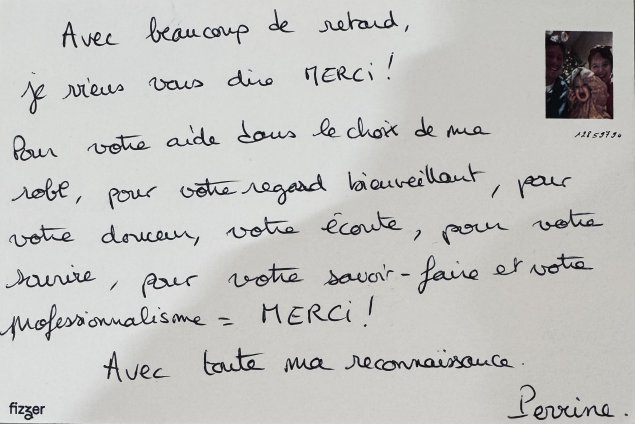 Avec beaucoup de retard,
je viens vous dire MERCi !
Pour votre aide dans le choix de ma
robe, pour votre regard bienveillant, pour
votre douceur, votre écoute, pour votre
sourire, pour votre savoir-faire et votre
professionnalisme = MERCi !
Avec toute ma reconnaissance.
Perrine.
fizzer